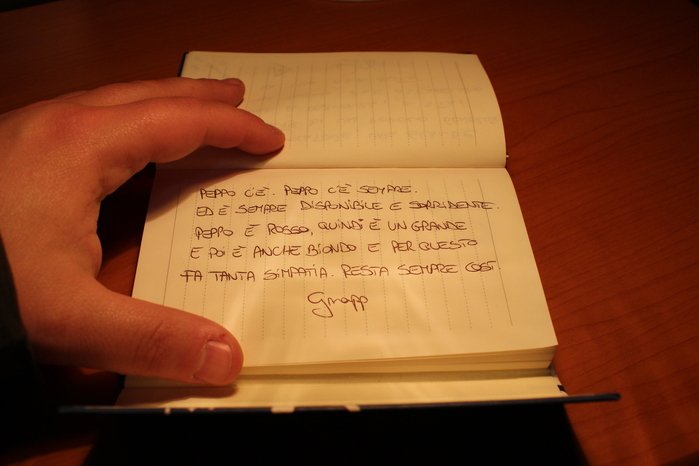 PEPPO C'È. PEPPO C'È SEMPRE.
ED È SEMPRE DISPONIBILE E SORRIDENTE.
PEPPO È ROSSO, QUINDI È UN GRANDE
E POI È ANCHE BIONDO E PER QUESTO
FA TANTA SIMPATIA. RESTA SEMPRE COSÌ
Gnapp